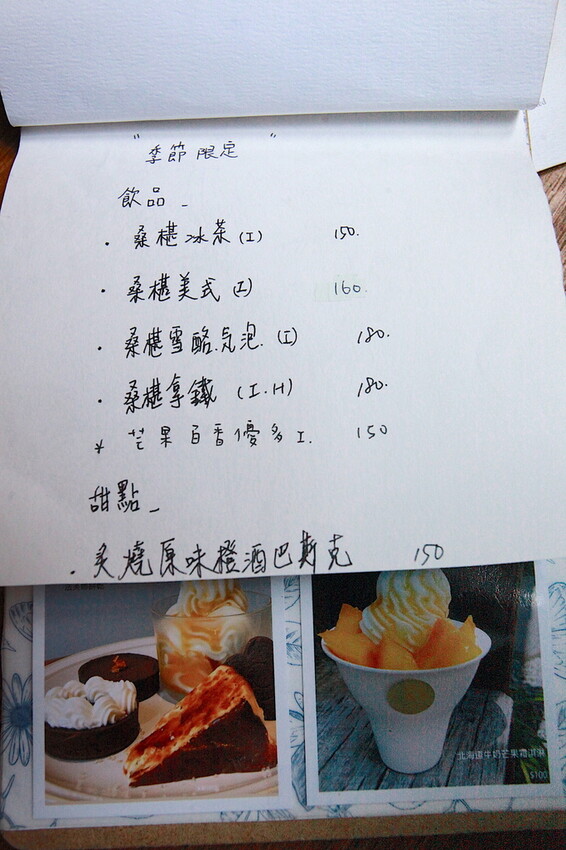 "季節限定"
飲品_
· 桑椹冰茶(I) 150.
· 桑椹美式(I) 160.
· 桑椹雪酪氣泡.(I) 180.
· 桑椹拿鐵 (I.H) 180.
* 芒果百香優多I. 150
甜點_
· 炙燒原味橙酒巴斯克 150
北海道牛奶芒果霜淇淋
$100